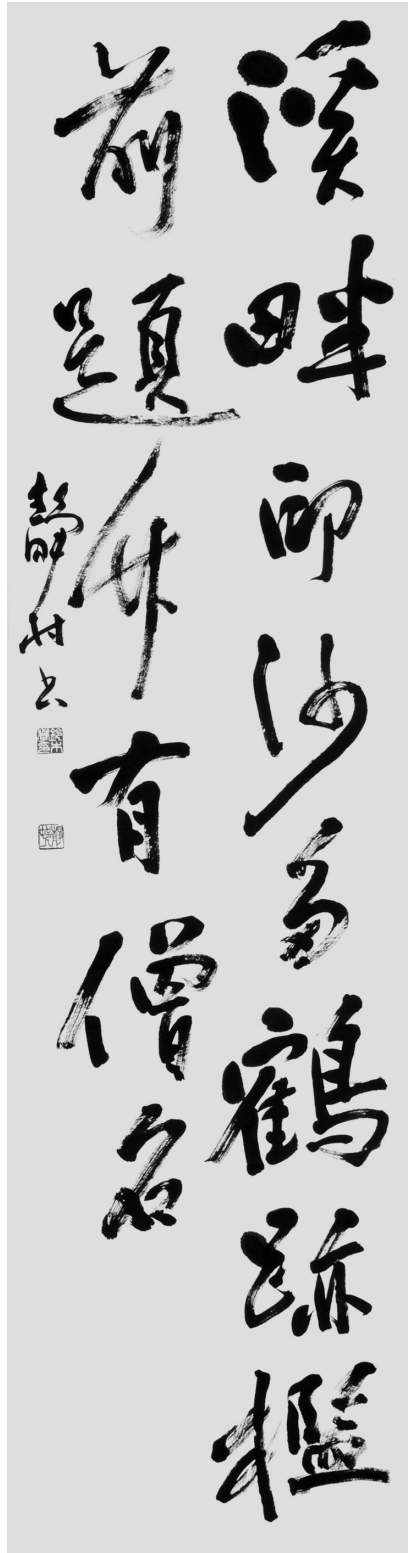 溪畔印沙多鶴跡檻
前題竹有僧名
靜村書